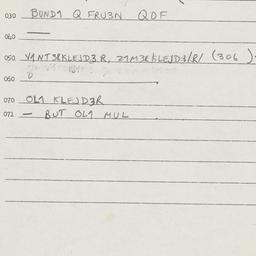 030 BUND1 Q FRU3N QOF
040 —
050 V1NTSRKLEJD3R, 21M3RKLEJD3/R/ (306)
060
070 OL1 KLEJD3R
071 — BUT OL1 MUL